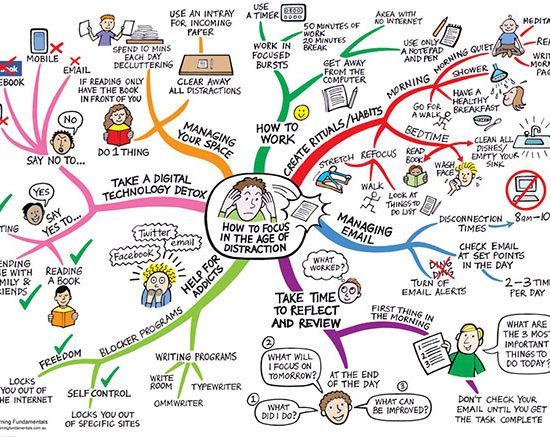 HOW TO FOCUS
IN THE AGE OF
DISTRACTION
MOBILE
EMAIL
NO
SAY NO TO...
TAKE A DIGITAL
TECHNOLOGY DETOX
YES
SAY
YES TO...
READING
A BOOK
USE AN INTRAY
FOR INCOMING
PAPER
SPEND 10 MINS
EACH DAY
DECLUTTERING
CLEAR AWAY
ALL DISTRACTIONS
IF READING ONLY
HAVE THE BOOK
IN FRONT OF YOU
DO 1 THING
MANAGING
YOUR SPACE
USE A
TIMER
50 MINUTES OF
WORK
WORK IN
FOCUSED
BURSTS
MINUTE
BREAK
AREA WITH
NO INTERNET
USE ONLY
A NOTEPAD
AND PEN
GET AWAY
FROM THE
COMPUTER
HOW TO
WORK
CREATE RITUALS/HABITS
MORNING
MORNING QUIET
SHOWER
HAVE A
HEALTHY
BREAKFAST
GO FOR
A WALK
BEDTIME
CLEAN ALL
DISHES/
EMPTY YOUR
SINK
WASH
FACE
READ
BOOK
STRETCH
REFOCUS
WALK
LOOK AT
THINGS TO
DO LIST
MANAGING
EMAIL
DISCONNECTION
TIMES
CHECK EMAIL
AT SET POINTS
IN THE DAY
2-3 TIMES
PER DAY
DING
DING
TURN OF
EMAIL ALERTS
TAKE TIME
TO REFLECT
AND REVIEW
WHAT
WORKED?
FIRST THING IN
THE MORNING
1
2
3
WHAT ARE
THE 3 MOST
THINGS TO
DO TODAY?
DON'T CHECK YOUR
EMAIL UNTIL YOU GET
THE TASK COMPLETE
AT THE END
OF THE DAY
1
WHAT
DID I DO?
2
WHAT WILL
I FOCUS ON
TOMORROW?
3
WHAT CAN BE
IMPROVED?
HELP FOR
ADDICTS
Twitter
email
Facebook
BLOCKER PROGRAMS
FREEDOM
LOCKS
YOU OUT OF
INTERNET
SELF CONTROL
LOCKS YOU OUT
OF SPECIFIC SITES
WRITING PROGRAMS
WRITE
ROOM
TYPEWRITER
OMMWRITER